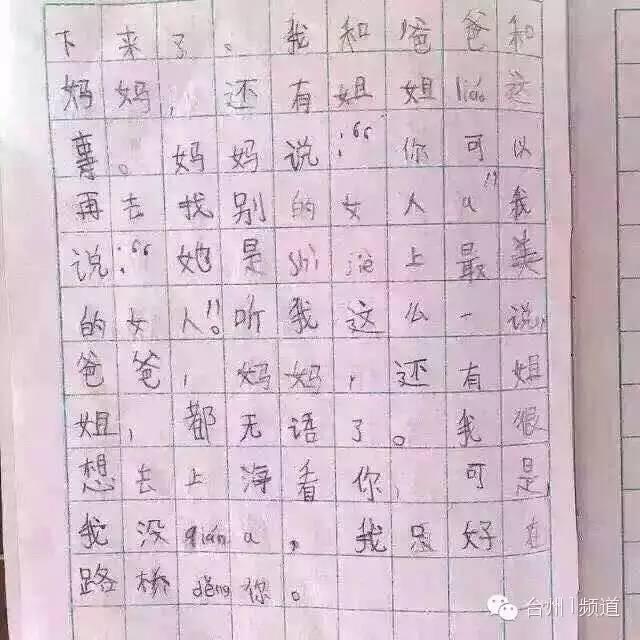 下来了。我和爸爸和
妈妈,还有姐姐liáo这
事。妈妈说:“你可以
再去找别的女人a”我
说:“她是shì jiè上最美
的女人”。听我这么一说,
爸爸,妈妈,还有姐
姐,都无语了。我很
想去上海看你,可是
我没qián a,我只好在
路桥děng你。
台州1频道